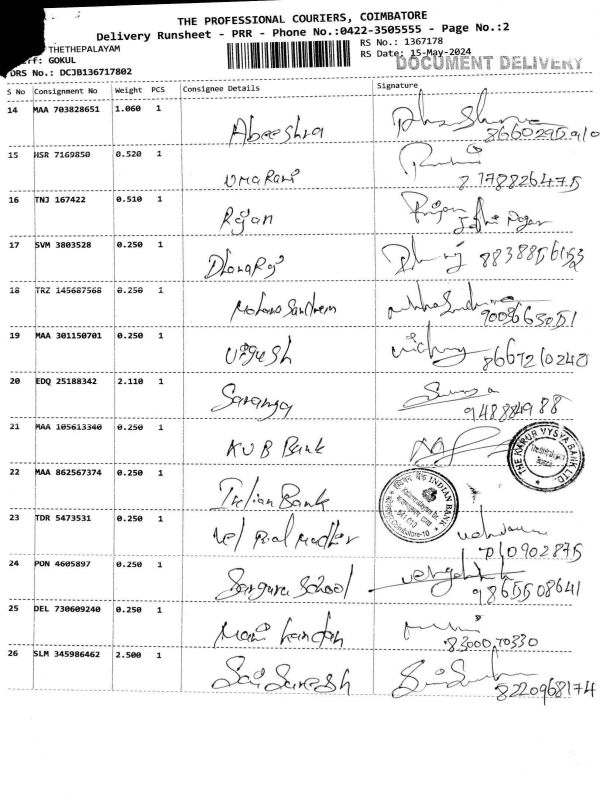 THE PROFESSIONAL COURIERS, COIMBATORE
Delivery Runsheet - PRR - Phone No.:0422-3505555 - Page No.:2
THETHEPALAYAM
RS No.: 1367178
GOKUL
RS Date: 15-May-2024
DOCUMENT DELIVERY
DRS No.: DCJB136717802
S No Consignment No Weight PCS Consignee Details Signature
14 MAA 703828651 1.060 1 Abeeshra
15 HSR 7169850 0.520 1 Uma Rani
8778826475
16 TNJ 167422 0.510 1 Rajan
17 SVM 3803528 0.250 1 DhanaRaj
18 TRZ 145687568 0.250 1
19 MAA 301150701 0.250 1 Vignesh
8667210240
20 EDQ 25188342 2.110 1 Saranya
21 MAA 105613340 0.250 1 KVB Bank
THE KARUR VYSYA BANK LTD.
22 MAA 862567374 0.250 1 Indian Bank
INDIAN BANK
Coimbatore-10
23 TDR 5473531 0.250 1
24 PON 4605897 0.250 1 School
9865508641
25 DEL 730609240 0.250 1 Manikandan
8300070330
26 SLM 345986462 2.500 1 Sai Suresh
8220968174